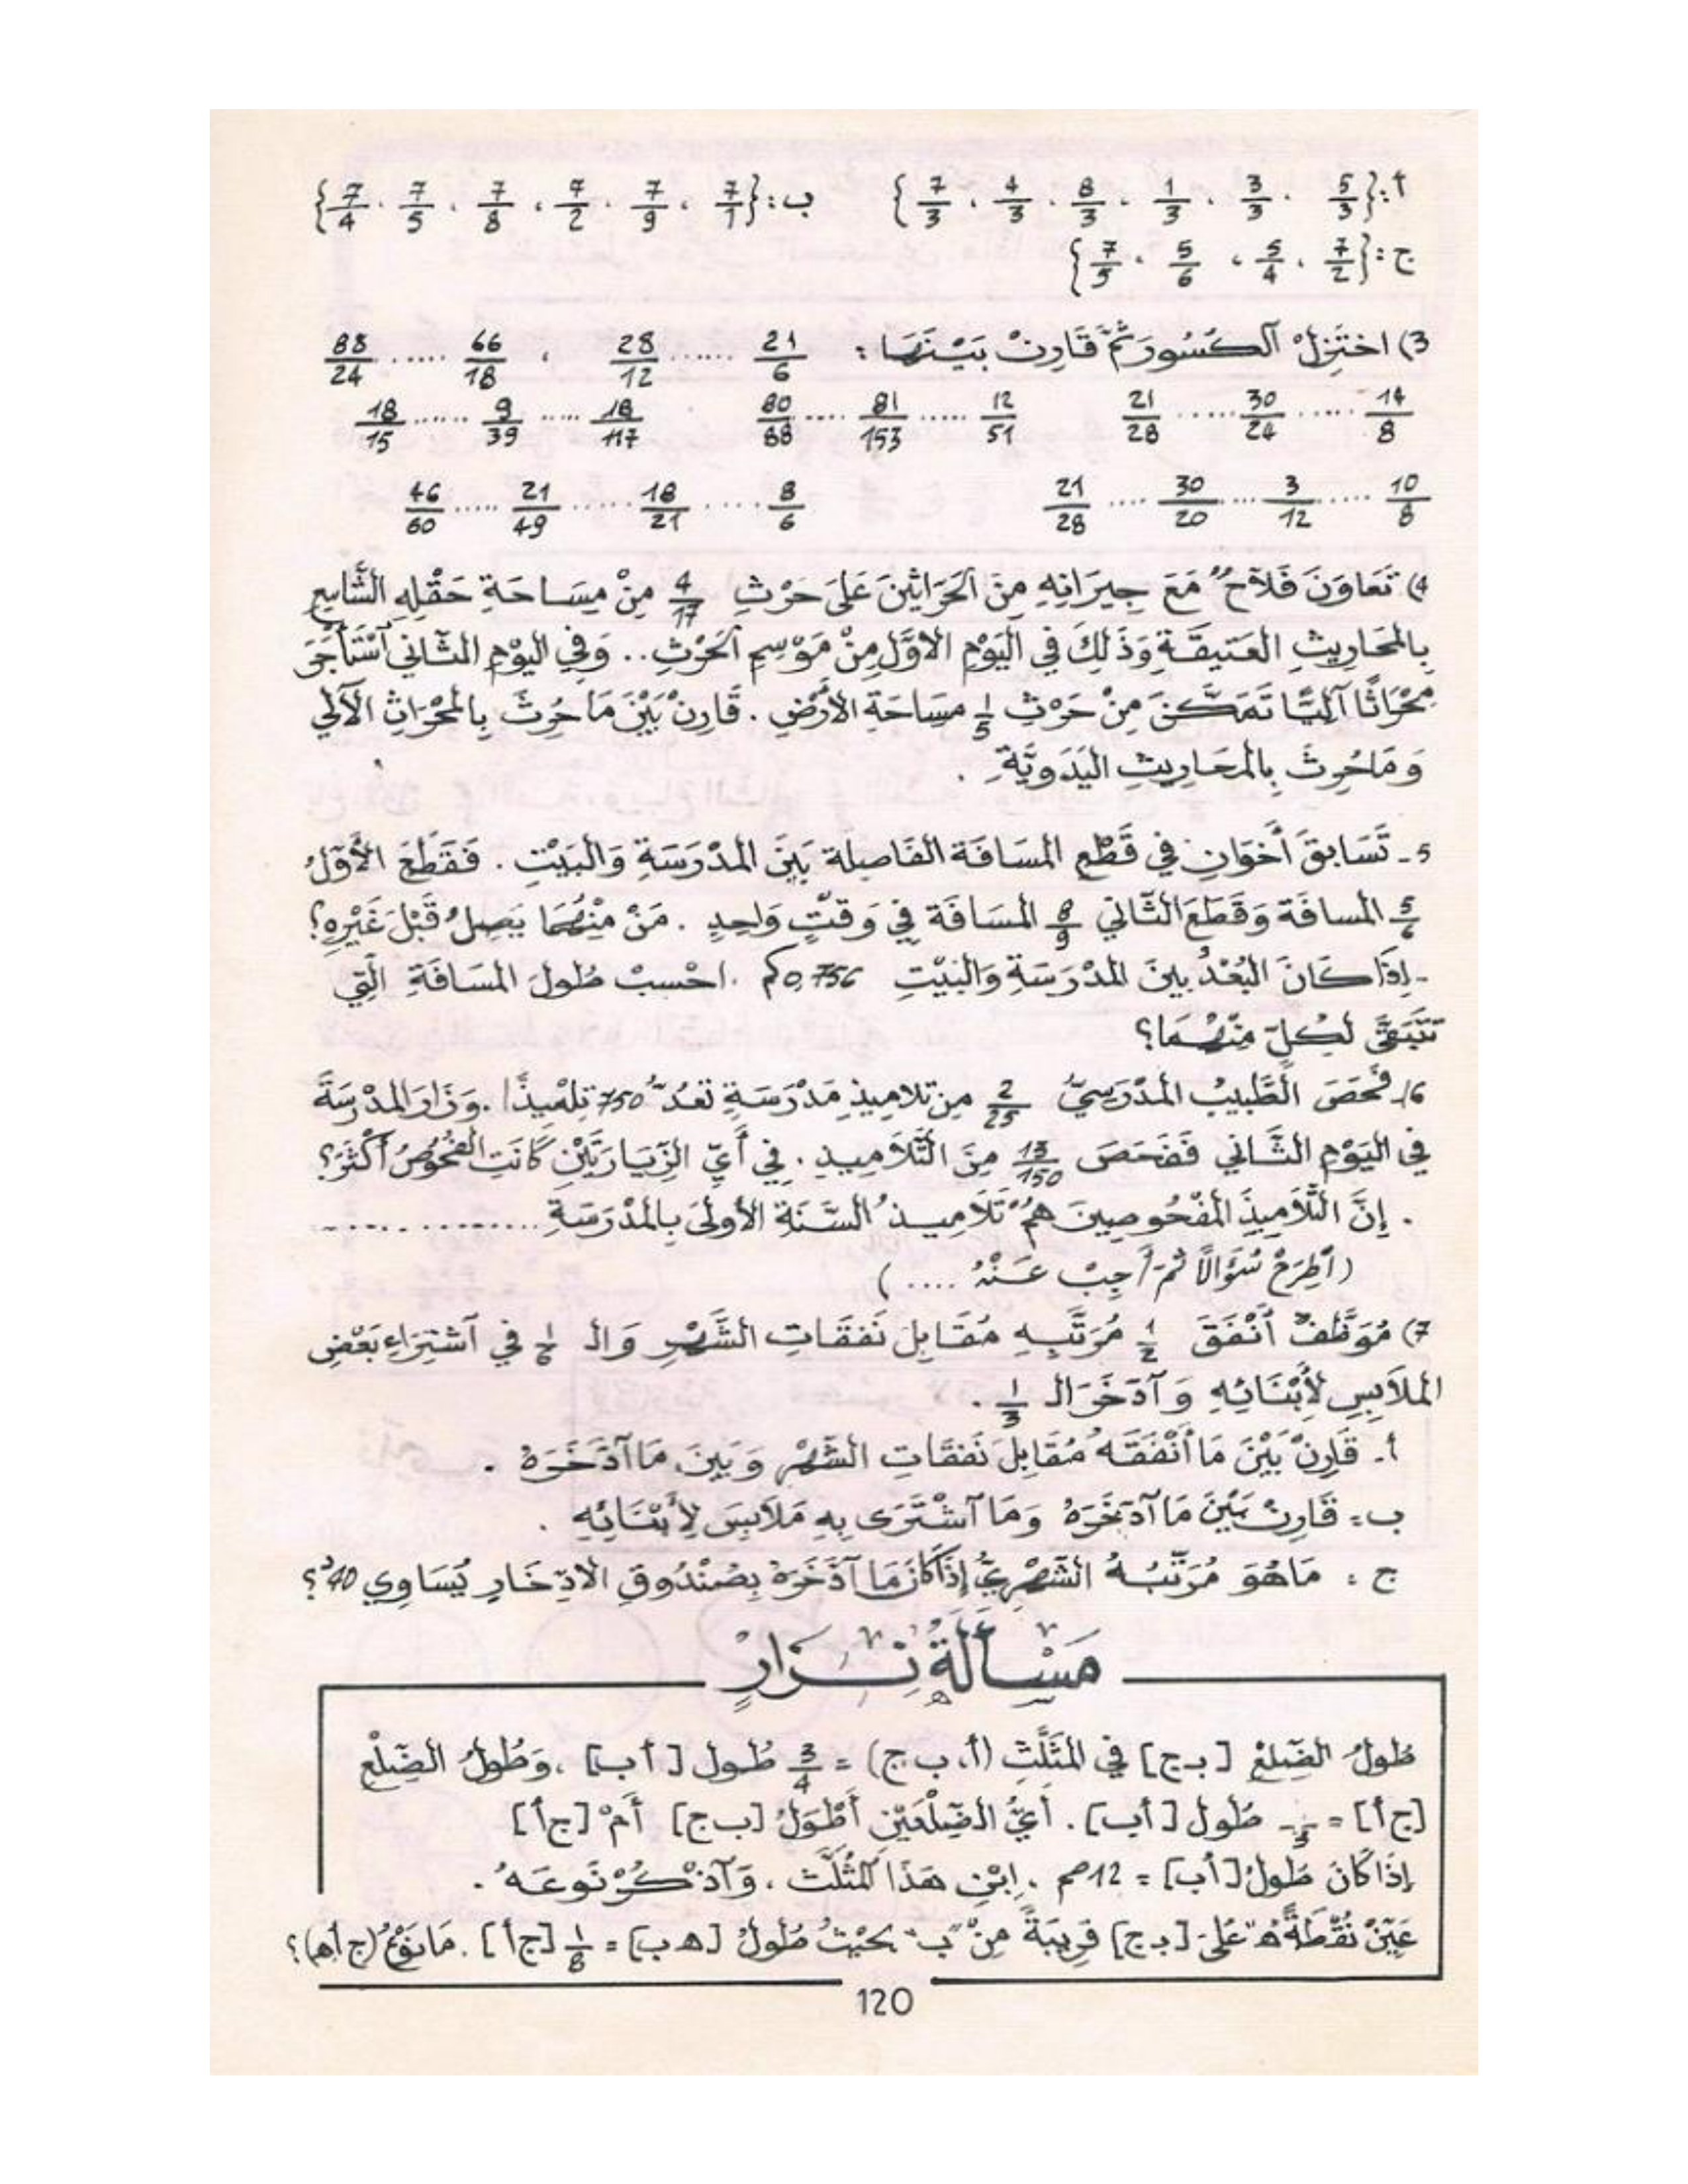 أ: {5/3 . 3/3 . 1/3 . 8/3 . 4/3 . 7/3}   ب: {7/1 . 7/9 . 7/2 . 7/8 . 7/5 . 7/4}
ج: {7/2 . 5/4 . 5/6 . 7/5}
3) اختَزِلْ الكُسُورَ ثُمَّ قَارِنْ بَيْنَهَا : 21/6 ...... 28/12 ، 66/18 ..... 88/24
14/8 ..... 30/24 ..... 21/28   12/51 ..... 81/153 .... 80/88   18/117 ..... 9/39 ...... 18/15
10/8 ..... 3/12 ... 30/20 .... 21/28   8/6 ..... 18/21 ..... 21/49 ..... 46/60
4) تَعَاوَنَ فَلاَّحٌ مَعَ جِيرَانِهِ مِنَ الحَرَاثِينَ عَلَى حَرْثِ 4/17 مِنْ مِسَاحَةِ حَقْلِهِ الشَّاسِعِ
بِالمَحَارِيثِ العَتِيقَةِ وَذَلِكَ فِي اليَوْمِ الأَوَّلِ مِنْ مَوْسِمِ الحَرْثِ .. وَفِي اليَوْمِ الثَّانِي اسْتَأْجَرَ
مِحْرَاثًا آلِيًّا تَمَكَّنَ مِنْ حَرْثِ 1/5 مَسَاحَةِ الأَرْضِ . قَارِنْ بَيْنَ مَا حُرِثَ بِالمِحْرَاثِ الآلِي
وَمَا حُرِثَ بِالمَحَارِيثِ اليَدَوِيَّةِ .
5- تَسَابَقَ أَخَوَانِ فِي قَطْعِ المَسَافَة الفَاصِلَة بَيْنَ المَدْرَسَةِ وَالبَيْتِ . فَقَطَعَ الأَوَّلُ
5/6 المسافَة وَقَطَعَ الثَّانِي 8/9 المَسَافَة فِي وَقْتٍ وَاحِدٍ . مَنْ مِنْهُمَا يَصِلُ قَبْلَ غَيْرِهِ؟
- إِذَا كَانَ البُعْدُ بينَ المَدْرَسَةِ وَالبَيْتِ 0,756 كم . احْسِبْ طُولَ المَسَافَةِ الَّتِي
تَتَبَقَّى لِكُلّ مِنْهُمَا؟
6/- فَحَصَ الطَّبِيبُ المَدْرَسِيُّ 2/25 مِن تلاَمِيذِ مَدْرَسَةٍ تَعُدُّ 750 تِلْمِيذًا . وَزَارَ المَدْرَسَةَ
فِي اليَوْمِ الثَّانِي فَفَحَصَ 13/150 مِنَ التَّلاَمِيذِ . فِي أَيِّ الزِّيَارَتَيْنِ كَانَتِ الفُحُوصُ أَكْثَرَ؟
. إِنَّ التَّلاَمِيذَ المَفْحُوصِينَ هُمْ تَلاَمِيذُ السَّنَةِ الأُولَى بِالمَدْرَسَةِ ..............
( اِطْرَحْ سُؤَالاً ثُمَّ أَجِبْ عَنْهُ .... )
7) مُوَظَّفٌ أَنْفَقَ 1/2 مُرَتَّبِهِ مُقَابِلَ نَفَقَاتِ الشَّهْرِ وَالـ 1/6 فِي اشْتِرَاءِ بَعْضِ
المَلاَبِسِ لأَبْنَائِهِ وَادَّخَرَ الـ 1/3 .
أ- قَارِنْ بَيْنَ مَا أَنْفَقَهُ مُقَابِلَ نَفَقَاتِ الشَّهْرِ وَبَيْنَ مَا ادَّخَرَهُ .
ب- قَارِنْ بَيْنَ مَا ادَّخَرَهُ وَمَا اشْتَرَى بِهِ مَلاَبِسَ لأَبْنَائِهِ .
ج : مَا هُوَ مُرَتَّبُهُ الشَّهْرِيُّ إِذَا كَانَ مَا ادَّخَرَهُ بِصُنْدُوقِ الادِّخَارِ يُسَاوِي 40د؟
مَسْأَلَةُ نِزَارٍ
طُولُ الضّلعْ [ب ج] فِي المُثَلَّثِ (أ، ب ج) = 3/4 طُول [أ ب] ، وَطُولُ الضِّلْعْ
[ج أ] = طُول [أ ب] . أَيُّ الضِّلْعَيْنِ أَطْوَلُ [ب ج] أَمْ [ج أ]
إِذَا كَانَ طُولُ [أ ب] = 12 صم . اِبْنِ هَذَا المُثَلَّث ، وَاذْكُرْ نَوعَهُ .
عَيِّنْ نُقْطَةً "ه" عَلَى [ب ج] قَرِيبَةً مِنْ "ب" بحَيْثُ طُولُ [ه ب] = 1/8 [ج أ] . مَا نَوْعُ (ج أ ه)؟
120